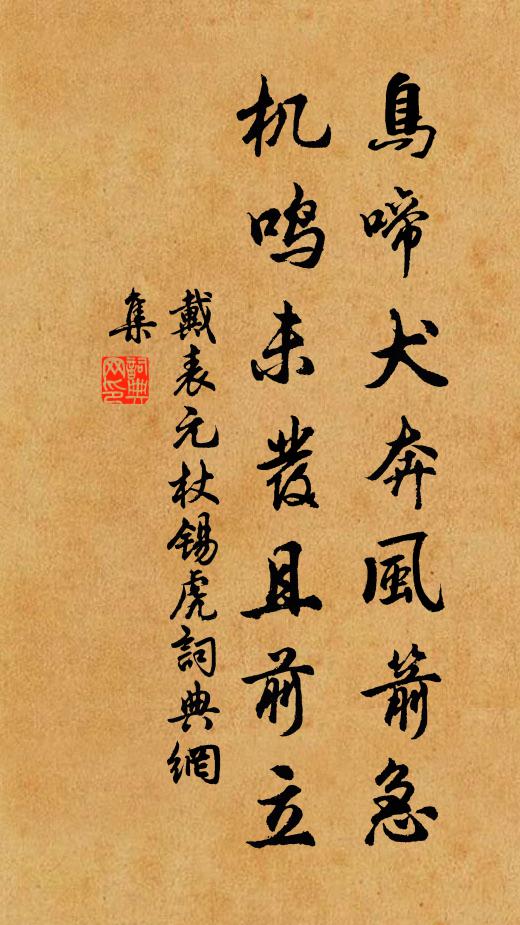 鳥啼犬奔風箭急
机鸣未發且前立
戴表元杖锡虎詞典網
集
詞典
网印